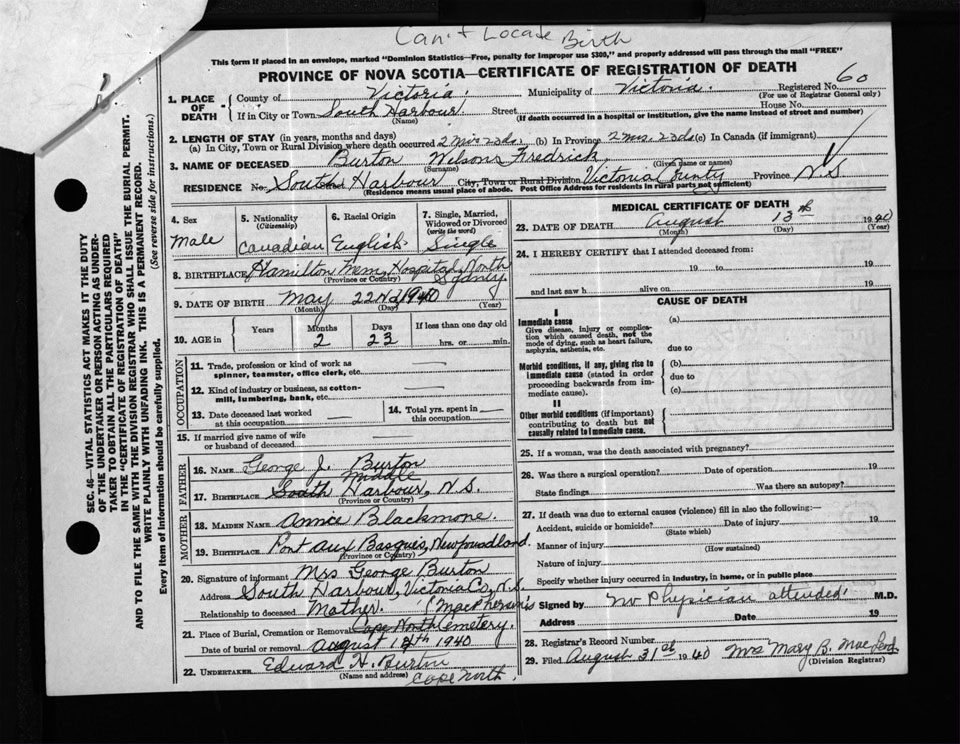 Can't Locate Birth
This form if placed in an envelope, marked "Dominion Statistics—Free, penalty for improper use $300," and properly addressed will pass through the mail "FREE"
PROVINCE OF NOVA SCOTIA—CERTIFICATE OF REGISTRATION OF DEATH
SEC. 46—VITAL STATISTICS ACT MAKES IT THE DUTY
OF THE UNDERTAKER OR PERSON ACTING AS UNDER-
TAKER TO OBTAIN ALL THE PARTICULARS REQUIRED
IN THE "CERTIFICATE OF REGISTRATION OF DEATH"
AND TO FILE THE SAME WITH THE DIVISION REGISTRAR WHO SHALL ISSUE THE BURIAL PERMIT.
WRITE PLAINLY WITH UNFADING INK. THIS IS A PERMANENT RECORD.
Every item of information should be carefully supplied. (See reverse side for instructions.)
1. PLACE OF DEATH
County of Victoria. Municipality of Victoria. Registered No. 60
(For use of Registrar General only)
If in City or Town South Harbour Street House No.
(Name) (If death occurred in a hospital or institution, give the name instead of street and number)
2. LENGTH OF STAY (in years, months and days)
(a) In City, Town or Rural Division where death occurred 2 Mos 23ds (b) In Province 2 mos. 23ds (c) In Canada (if immigrant)
3. NAME OF DECEASED Burton Wilson Fredrick,
(Surname) (Given name or names)
RESIDENCE No. Street South Harbour City, Town or Rural Division Victoria County Province N.S.
(Residence means usual place of abode. Post Office Address for residents in rural parts not sufficient)
4. Sex
Male
5. Nationality
(Citizenship)
Canadian
6. Racial Origin
English
7. Single, Married,
Widowed or Divorced
(write the word)
Single
8. BIRTHPLACE Hamilton Mem. Hospital, North
Sydney.
(Province or Country)
9. DATE OF BIRTH May 22nd 1940
(Month) (Day) (Year)
10. AGE in
Years Months Days If less than one day old
2 23 hrs. or min.
OCCUPATION
11. Trade, profession or kind of work as
spinner, teamster, office clerk, etc.
12. Kind of industry or business, as cotton-
mill, lumbering, bank, etc.
13. Date deceased last worked
at this occupation
14. Total yrs. spent in
this occupation
15. If married give name of wife
or husband of deceased
FATHER
16. NAME George J. Burton
Middle
17. BIRTHPLACE South Harbour, N.S.
(Province or Country)
MOTHER
18. MAIDEN NAME Annie Blackmore.
19. BIRTHPLACE Port aux Basques, Newfoundland.
(Province or Country)
20. Signature of informant Mrs George Burton
Address South Harbour, Victoria Co, N.S.
Relationship to deceased Mother. (MacPherson's
21. Place of Burial, Cremation or Removal Cape North Cemetery.
Date of burial or removal August 14th 1940
22. UNDERTAKER Edward H. Burton
(Name and address) Cape North.
MEDICAL CERTIFICATE OF DEATH
23. DATE OF DEATH August 13th 1940
(Month) (Day) (Year)
24. I HEREBY CERTIFY that I attended deceased from:
19 to 19
and last saw h alive on 19
CAUSE OF DEATH
I
Immediate cause
Give disease, injury or complica-
tion which caused death, not the
mode of dying, such as heart failure,
asphyxia, asthenia, etc.
(a)
due to
Morbid conditions, if any, giving rise to
immediate cause (stated in order
proceeding backwards from im-
mediate cause).
(b)
due to
(c)
II
Other morbid conditions (if important)
contributing to death but not
causally related to immediate cause.
25. If a woman, was the death associated with pregnancy?
26. Was there a surgical operation? Date of operation 19
State findings Was there an autopsy?
27. If death was due to external causes (violence) fill in also the following:—
Accident, suicide or homicide? Date of injury 19
(State which)
Manner of injury
(How sustained)
Nature of injury
Specify whether injury occurred in industry, in home, or in public place
Signed by No Physician attended M.D.
Address Date 19
28. Registrar's Record Number
29. Filed August 31st 1940 Mrs Mary B. MacLeod.
(Division Registrar)